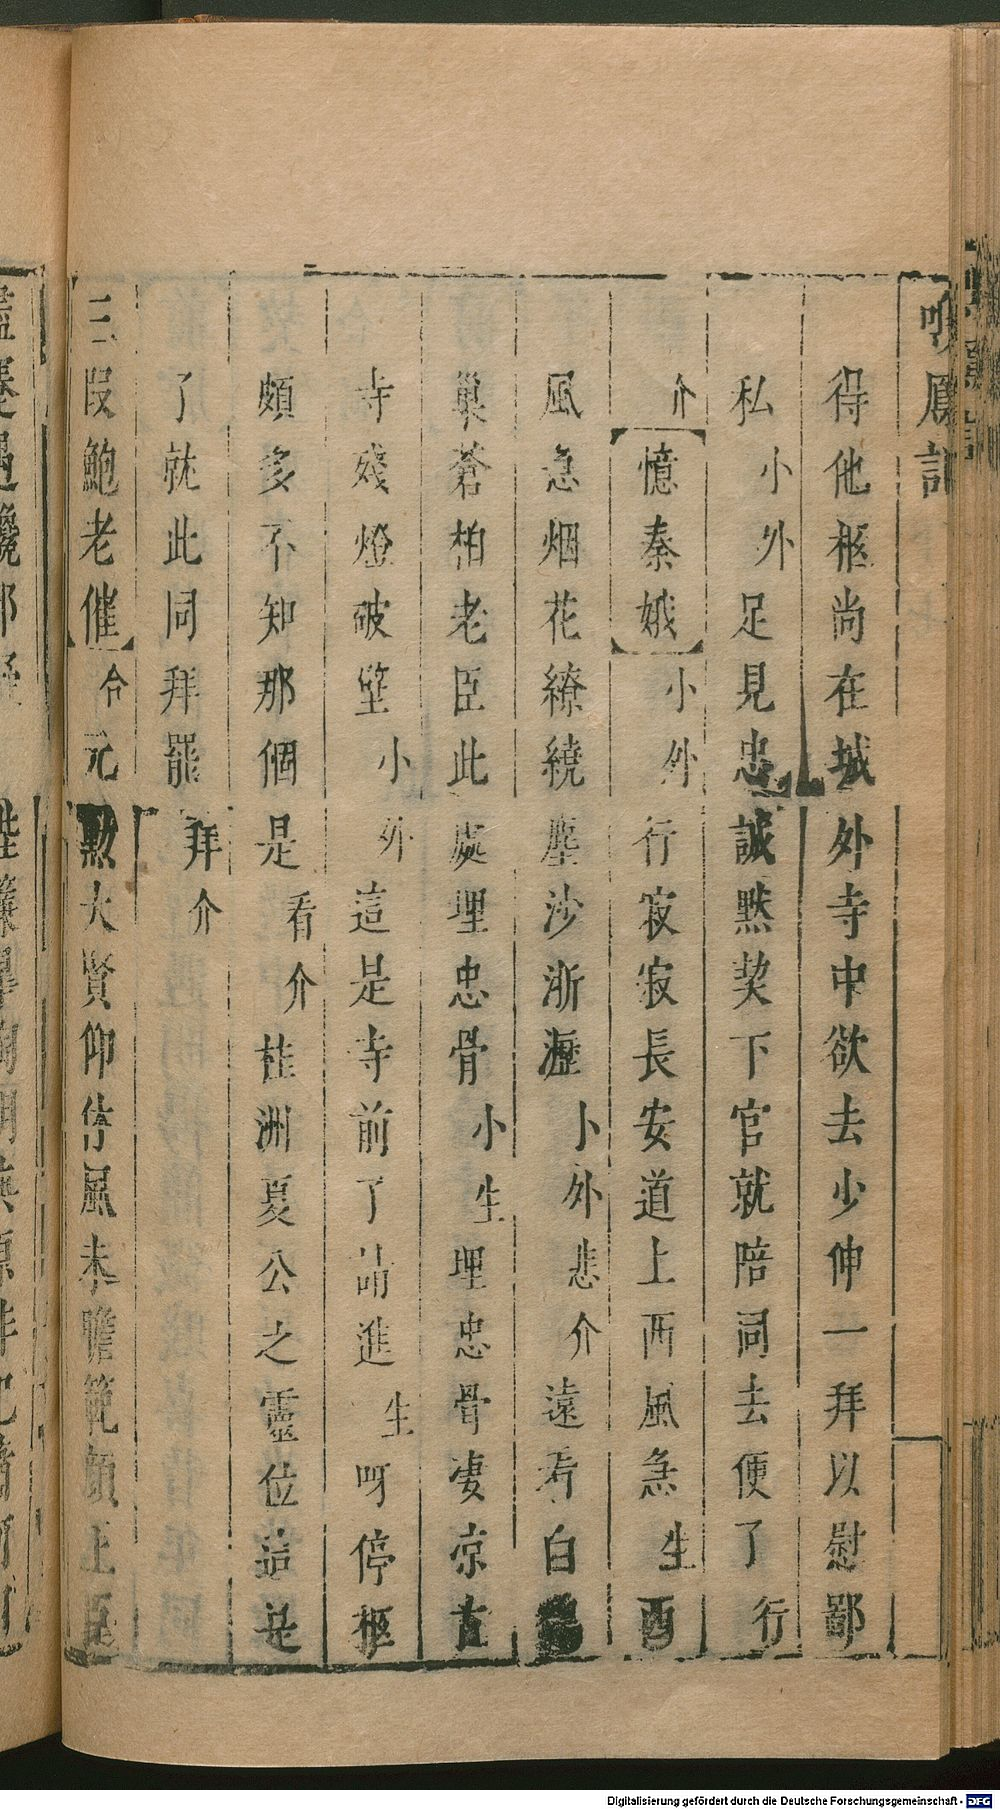 鳴鳳記
得他柩尚在城外寺中欲去少伸一拜以慰鄙
私小外足見忠誠默契下官就陪同去便了行
介憶秦娥小外行寂寂長安道上西風急生酉
風急烟花繚繞塵沙淅瀝小外悲介遠看白
巢蒼柏老臣此處埋忠骨小生埋忠骨凄凉古
寺殘燈破壁小外這是寺前了請進生呀停柩
頗多不知那個是看介桂洲夏公之靈位這是
了就此同拜罷拜介
三段鮑老催合元勲大賢仰停風未瞻範顏上臣
Digitalisierung gefördert durch die Deutsche Forschungsgemeinschaft - DFG